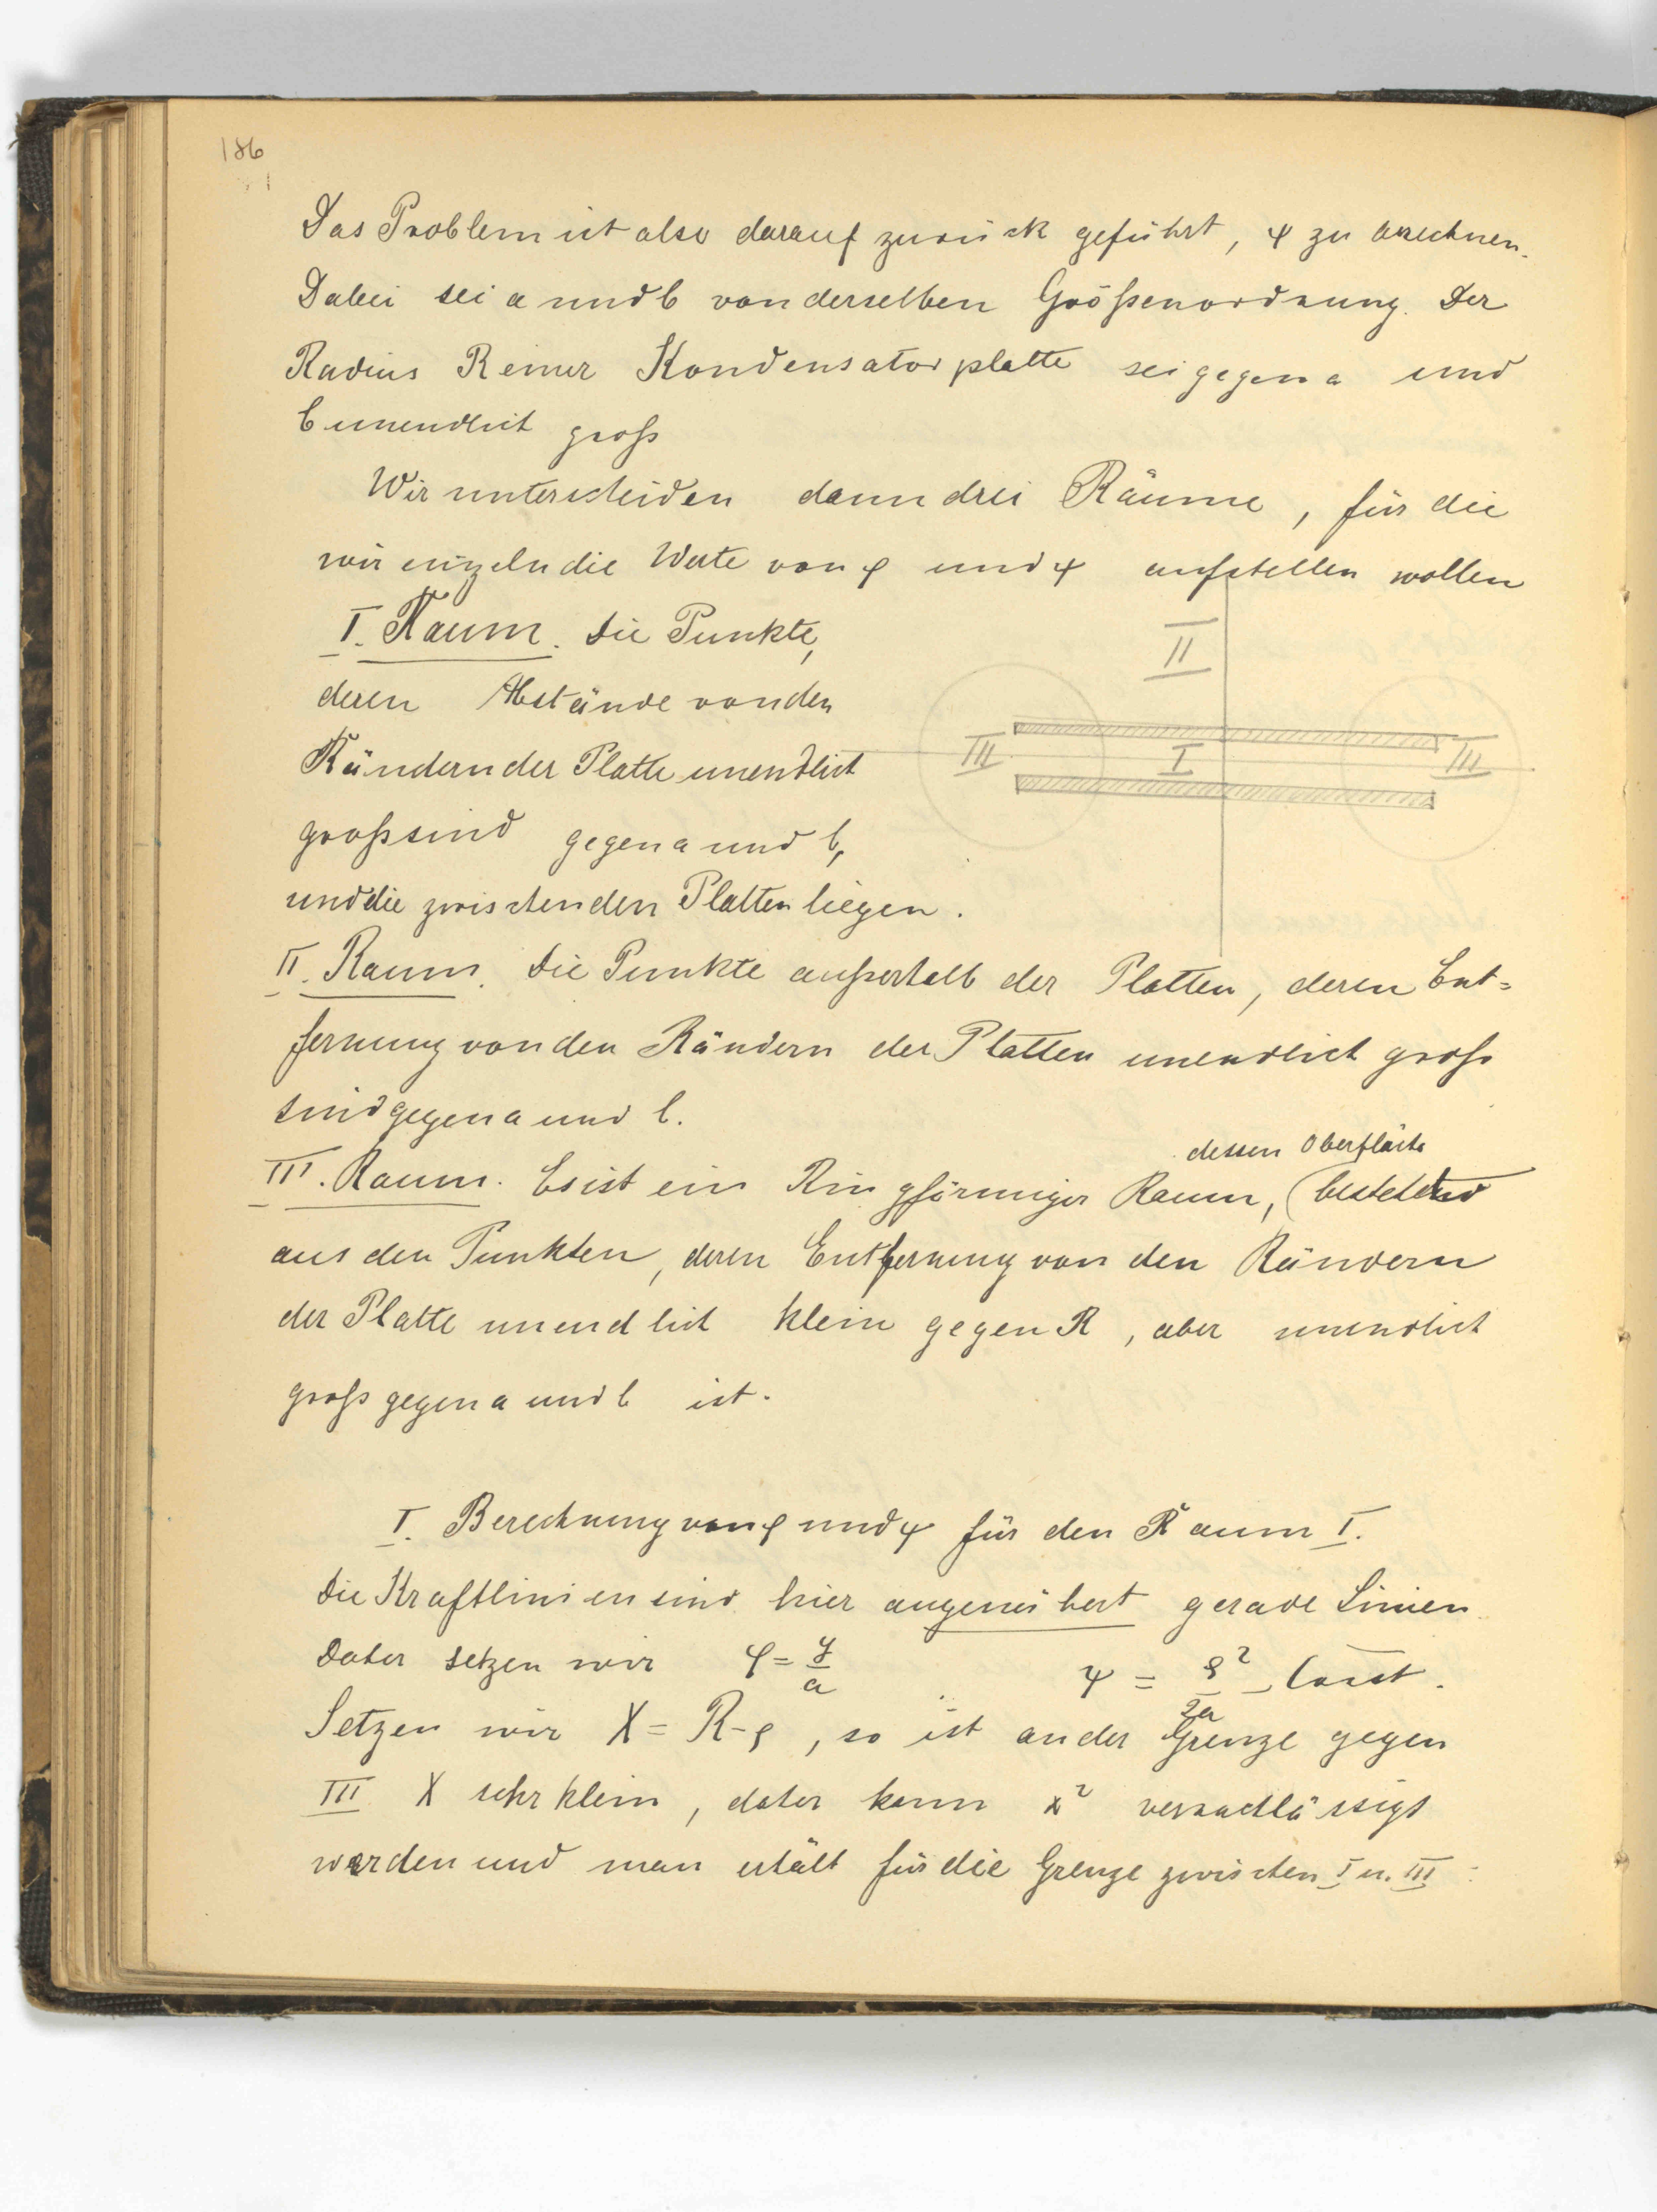 186
Das Problem ist also darauf zurück geführt, ψ zu berechnen.
Dabei sei a und b von derselben Größenordnung. Der
Radius R einer Kondensatorplatte sei gegen a und
b unendlich groß
Wir unterscheiden dann drei Räume, für die
wir einzeln die Werte von φ und ψ aufstellen wollen
I. Raum. Die Punkte,
deren Abstände von den
Rändern der Platte unendlich
groß sind gegen a und b,
und die zwischen den Platten liegen.
II
III I III
II. Raum. Die Punkte außerhalb der Platten, deren Ent=
fernung von den Rändern der Platten unendlich groß
sind gegen a und b.
dessen Oberfläche
III. Raum. Es ist ein Ringförmiger Raum, (bestehend
aus den Punkten, deren Entfernung von den Rändern
der Platte unendlich klein gegen R, aber unendlich
groß gegen a und b ist.
I. Berechnung von φ und ψ für den Raum I.
Die Kraftlinien sind hier angenähert gerade Linien
Daher setzen wir φ = y/a ψ = ρ²/2a - Const.
Setzen wir X = R-ρ, so ist an der Grenze gegen
III X sehr klein, daher kann x² vernachlässigt
werden und man erhält für die Grenze zwischen I u. III :